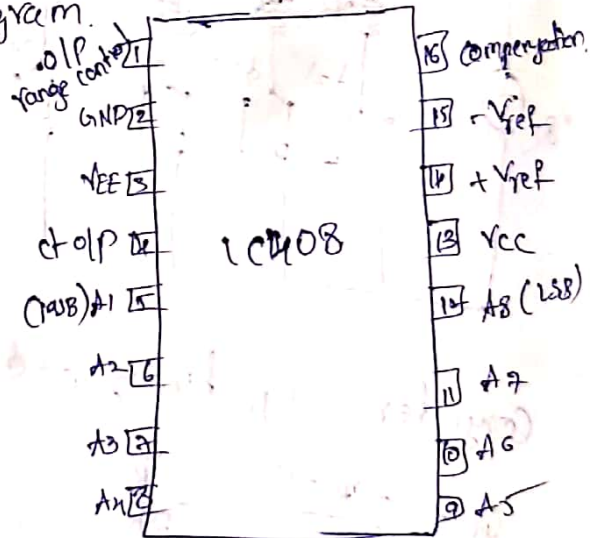 gram.
.O/P
range control 1
GNP 2
VEE 3
ct O/P 4
(MSB) A1 5
A2 6
A3 7
A4 8
IC1408
16 Compensation
15 - Vref
14 + Vref
13 VCC
12 A8 (LSB)
11 A7
10 A6
9 A5